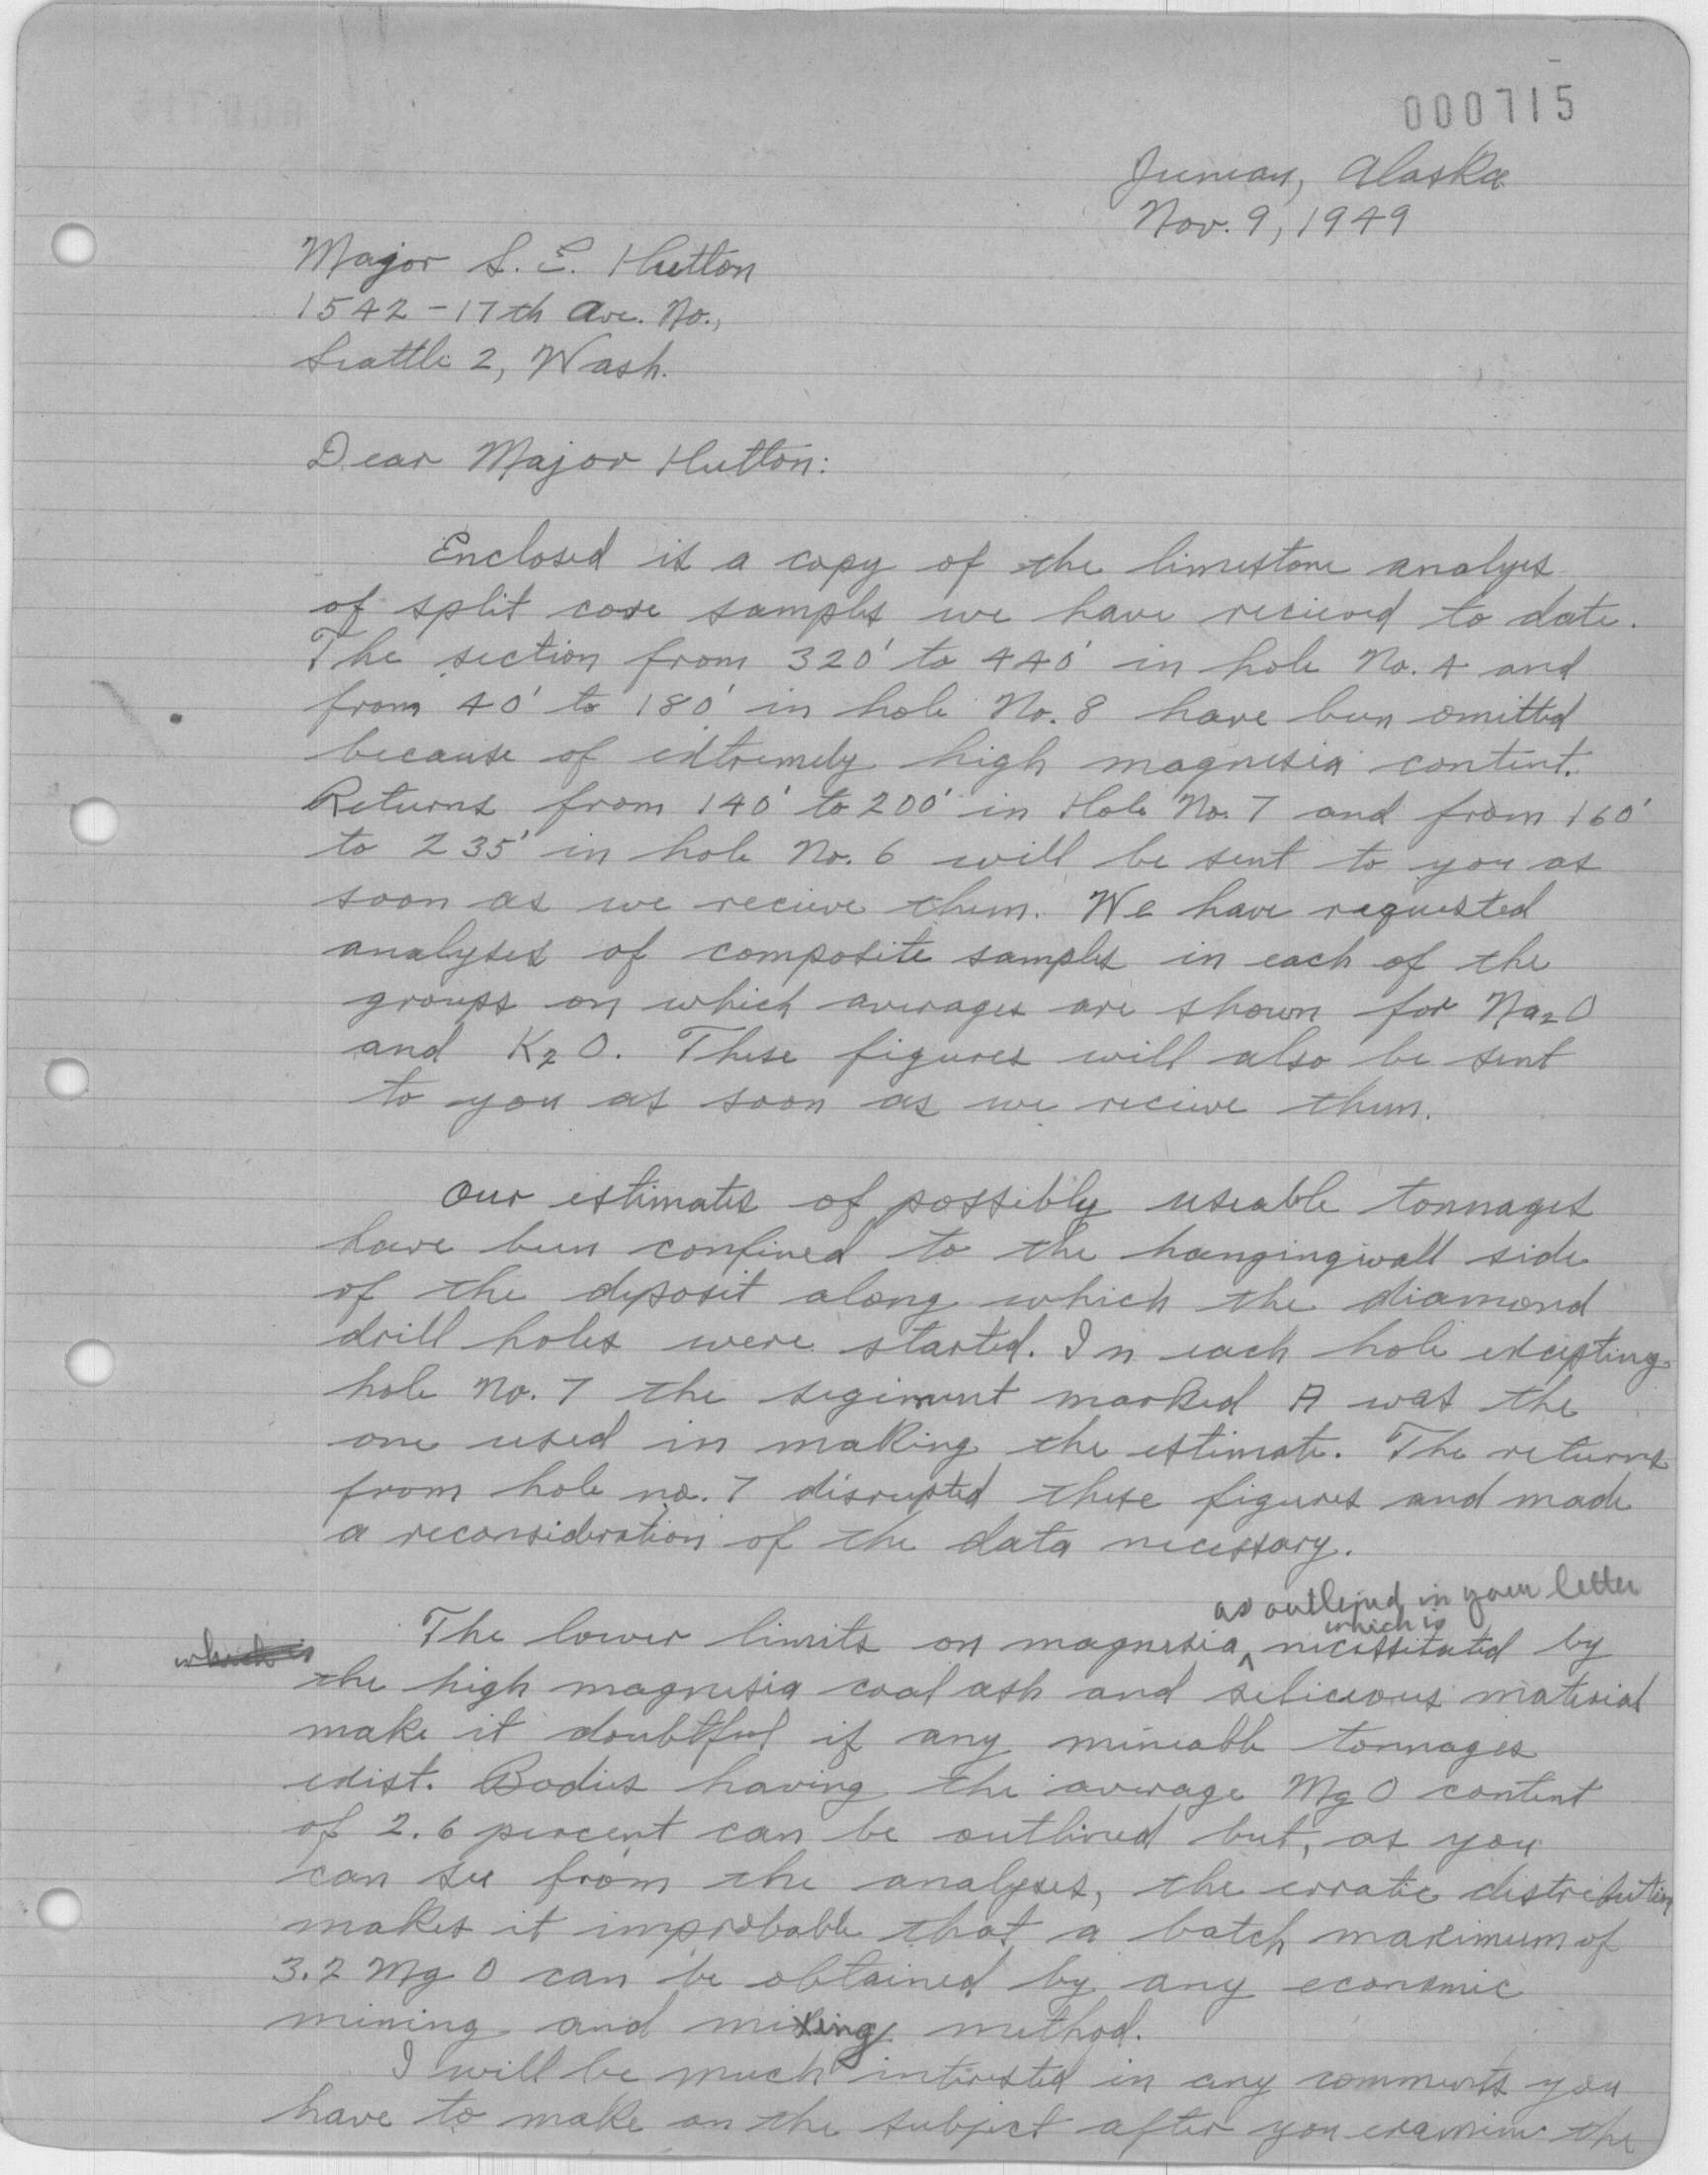 000715
Juneau, Alaska
Nov. 9, 1949
Major S. E. Hutton
1542 - 17th Ave. No.,
Seattle 2, Wash.
Dear Major Hutton:
Enclosed is a copy of the limestone analyses
of split core samples we have recieved to date.
The section from 320' to 440' in hole No. 4 and
from 40' to 180' in hole No. 8 have been omitted
because of extremely high magnesia content.
Returns from 140' to 200' in Hole No. 7 and from 160'
to 235' in hole No. 6 will be sent to you as
soon as we recieve them. We have requested
analyses of composite samples in each of the
groups on which averages are shown for Na₂O
and K₂O. These figures will also be sent
to you as soon as we recieve them.
Our estimates of possibly useable tonnages
have been confined to the hangingwall side
of the deposit along which the diamond
drill holes were started. In each hole excepting
hole No. 7 the segiment marked A was the
one used in making the estimate. The returns
from hole no. 7 disrupted these figures and made
a reconsideration of the data necessary.
as outlined in your letter
which is
The lower limits on magnesia, necessitated by
which is
the high magnesia coal ash and silicious material
make it doubtful if any mineable tonnages
exist. Bodies having the average MgO content
of 2.6 percent can be outlined but, as you
can see from the analyses, the erratic distribution
makes it improbable that a batch maximum of
3.2 MgO can be obtained by any economic
mining and mixing method.
I will be much interested in any comments you
have to make on the subject after you examine the